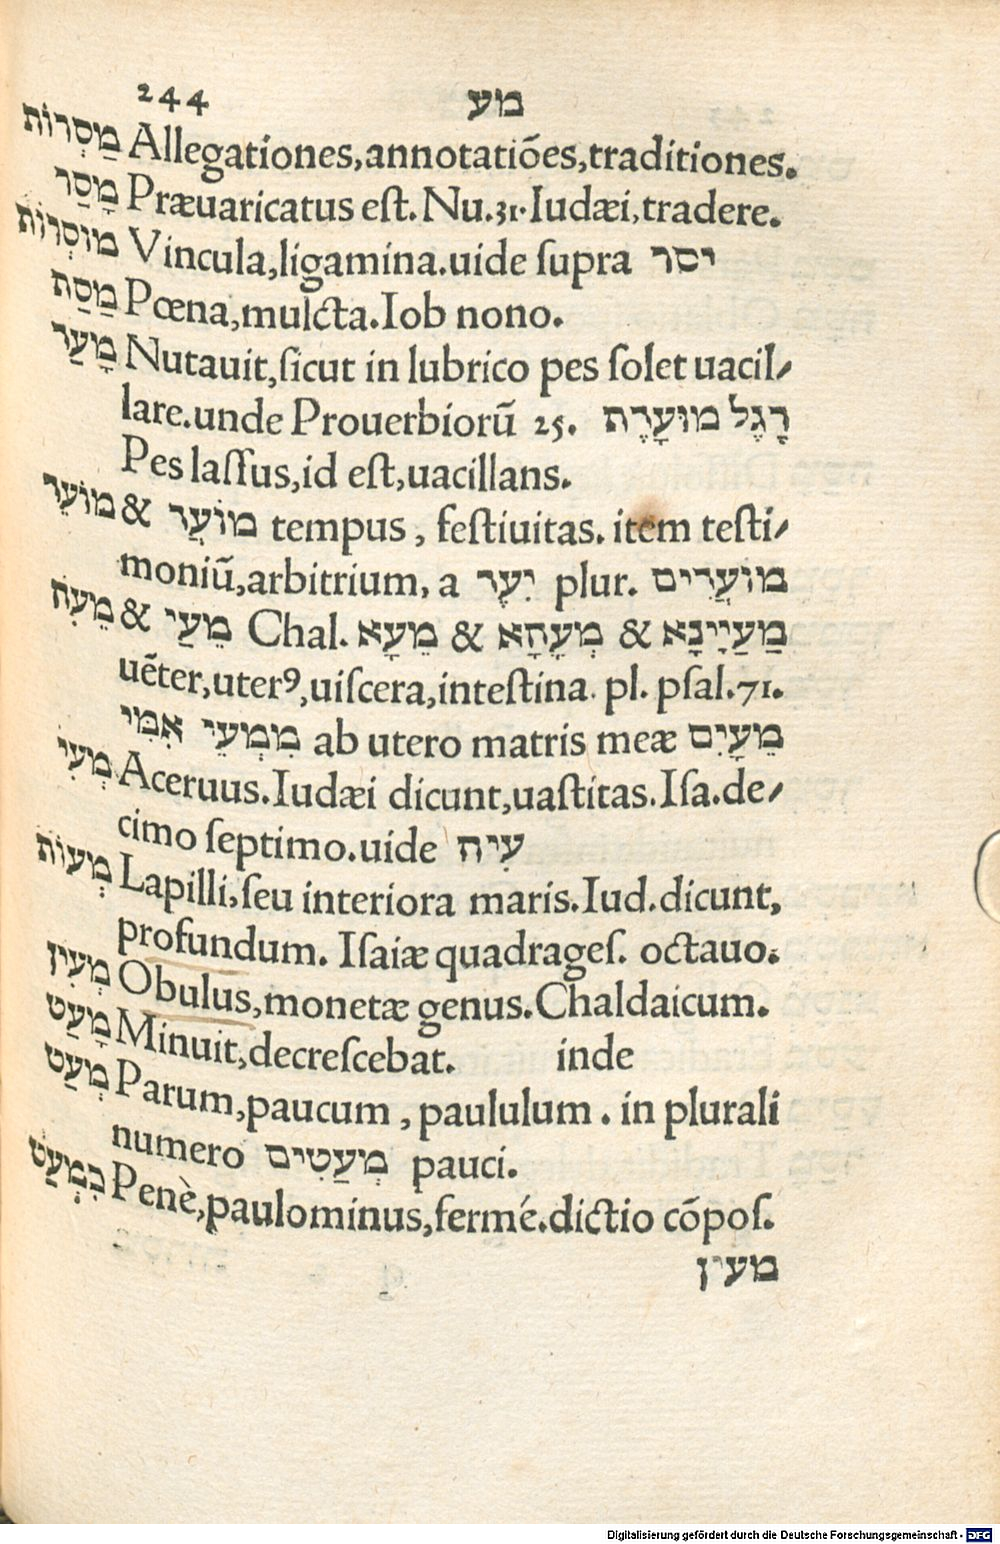 244 מע
מַסְרוֹת Allegationes,annotatiōes,traditiones.
מָסַר Præuaricatus eſt. Nu.31. Iudæi,tradere.
מוֹסְרוֹת Vincula,ligamina.uide ſupra יסר
מַסַת Pœna,mulcta.Iob nono.
מָעַר Nutauit,ſicut in lubrico pes ſolet uacil/
lare.unde Prouerbiorū 25. רָגֶל מוּעָרֶת
Pes laſſus,id eſt,uacillans.
מוֹעֵר & מוֹעֲר tempus, feſtiuitas. item teſti/
moniū,arbitrium, a יִעֶר plur. מוֹעֲרִים
מֵעִח & מֵעַי Chal. מֵעָא & מְעָחָא & מַעַיָינָא
uēter,uterꝰ,uiſcera,inteſtina. pl. pſal.71.
מֵעָיִם ab utero matris meæ מִמְעֵי אִמִי
מְעִי Aceruus.Iudæi dicunt,uaſtitas.Iſa.de/
cimo ſeptimo.uide עִיח
מְעוֹת Lapilli,ſeu interiora maris.Iud.dicunt,
profundum. Iſaiæ quadrageſ. octauo.
מְעִין Obulus,monetæ genus.Chaldaicum.
מָעַט Minuit,decreſcebat. inde
מְעַט Parum,paucum, paululum. in plurali
numero מְעַטִים pauci.
כִמְעַט Penè,paulominus,fermé.dictio cōpoſ.
מעין
Digitalisierung gefördert durch die Deutsche Forschungsgemeinschaft - DFG